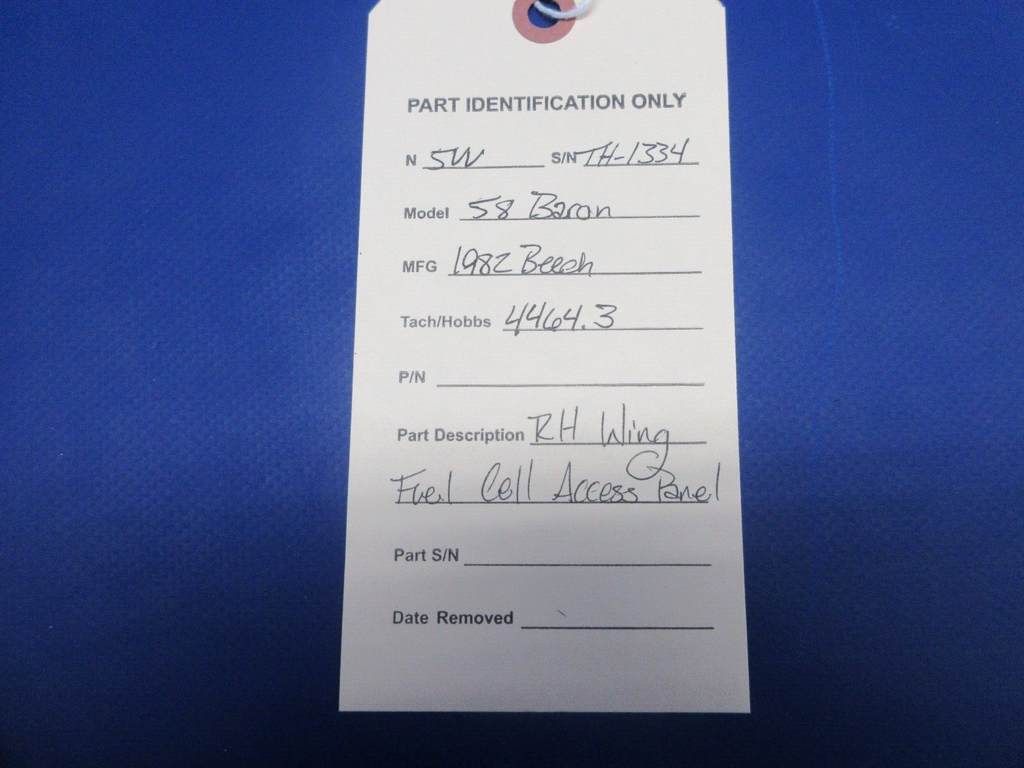 PART IDENTIFICATION ONLY
N 5W S/N TH-1334
Model 58 Baron
MFG 1982 Beech
Tach/Hobbs 4464.3
P/N
Part Description RH Wing
Fuel Cell Access Panel
Part S/N
Date Removed